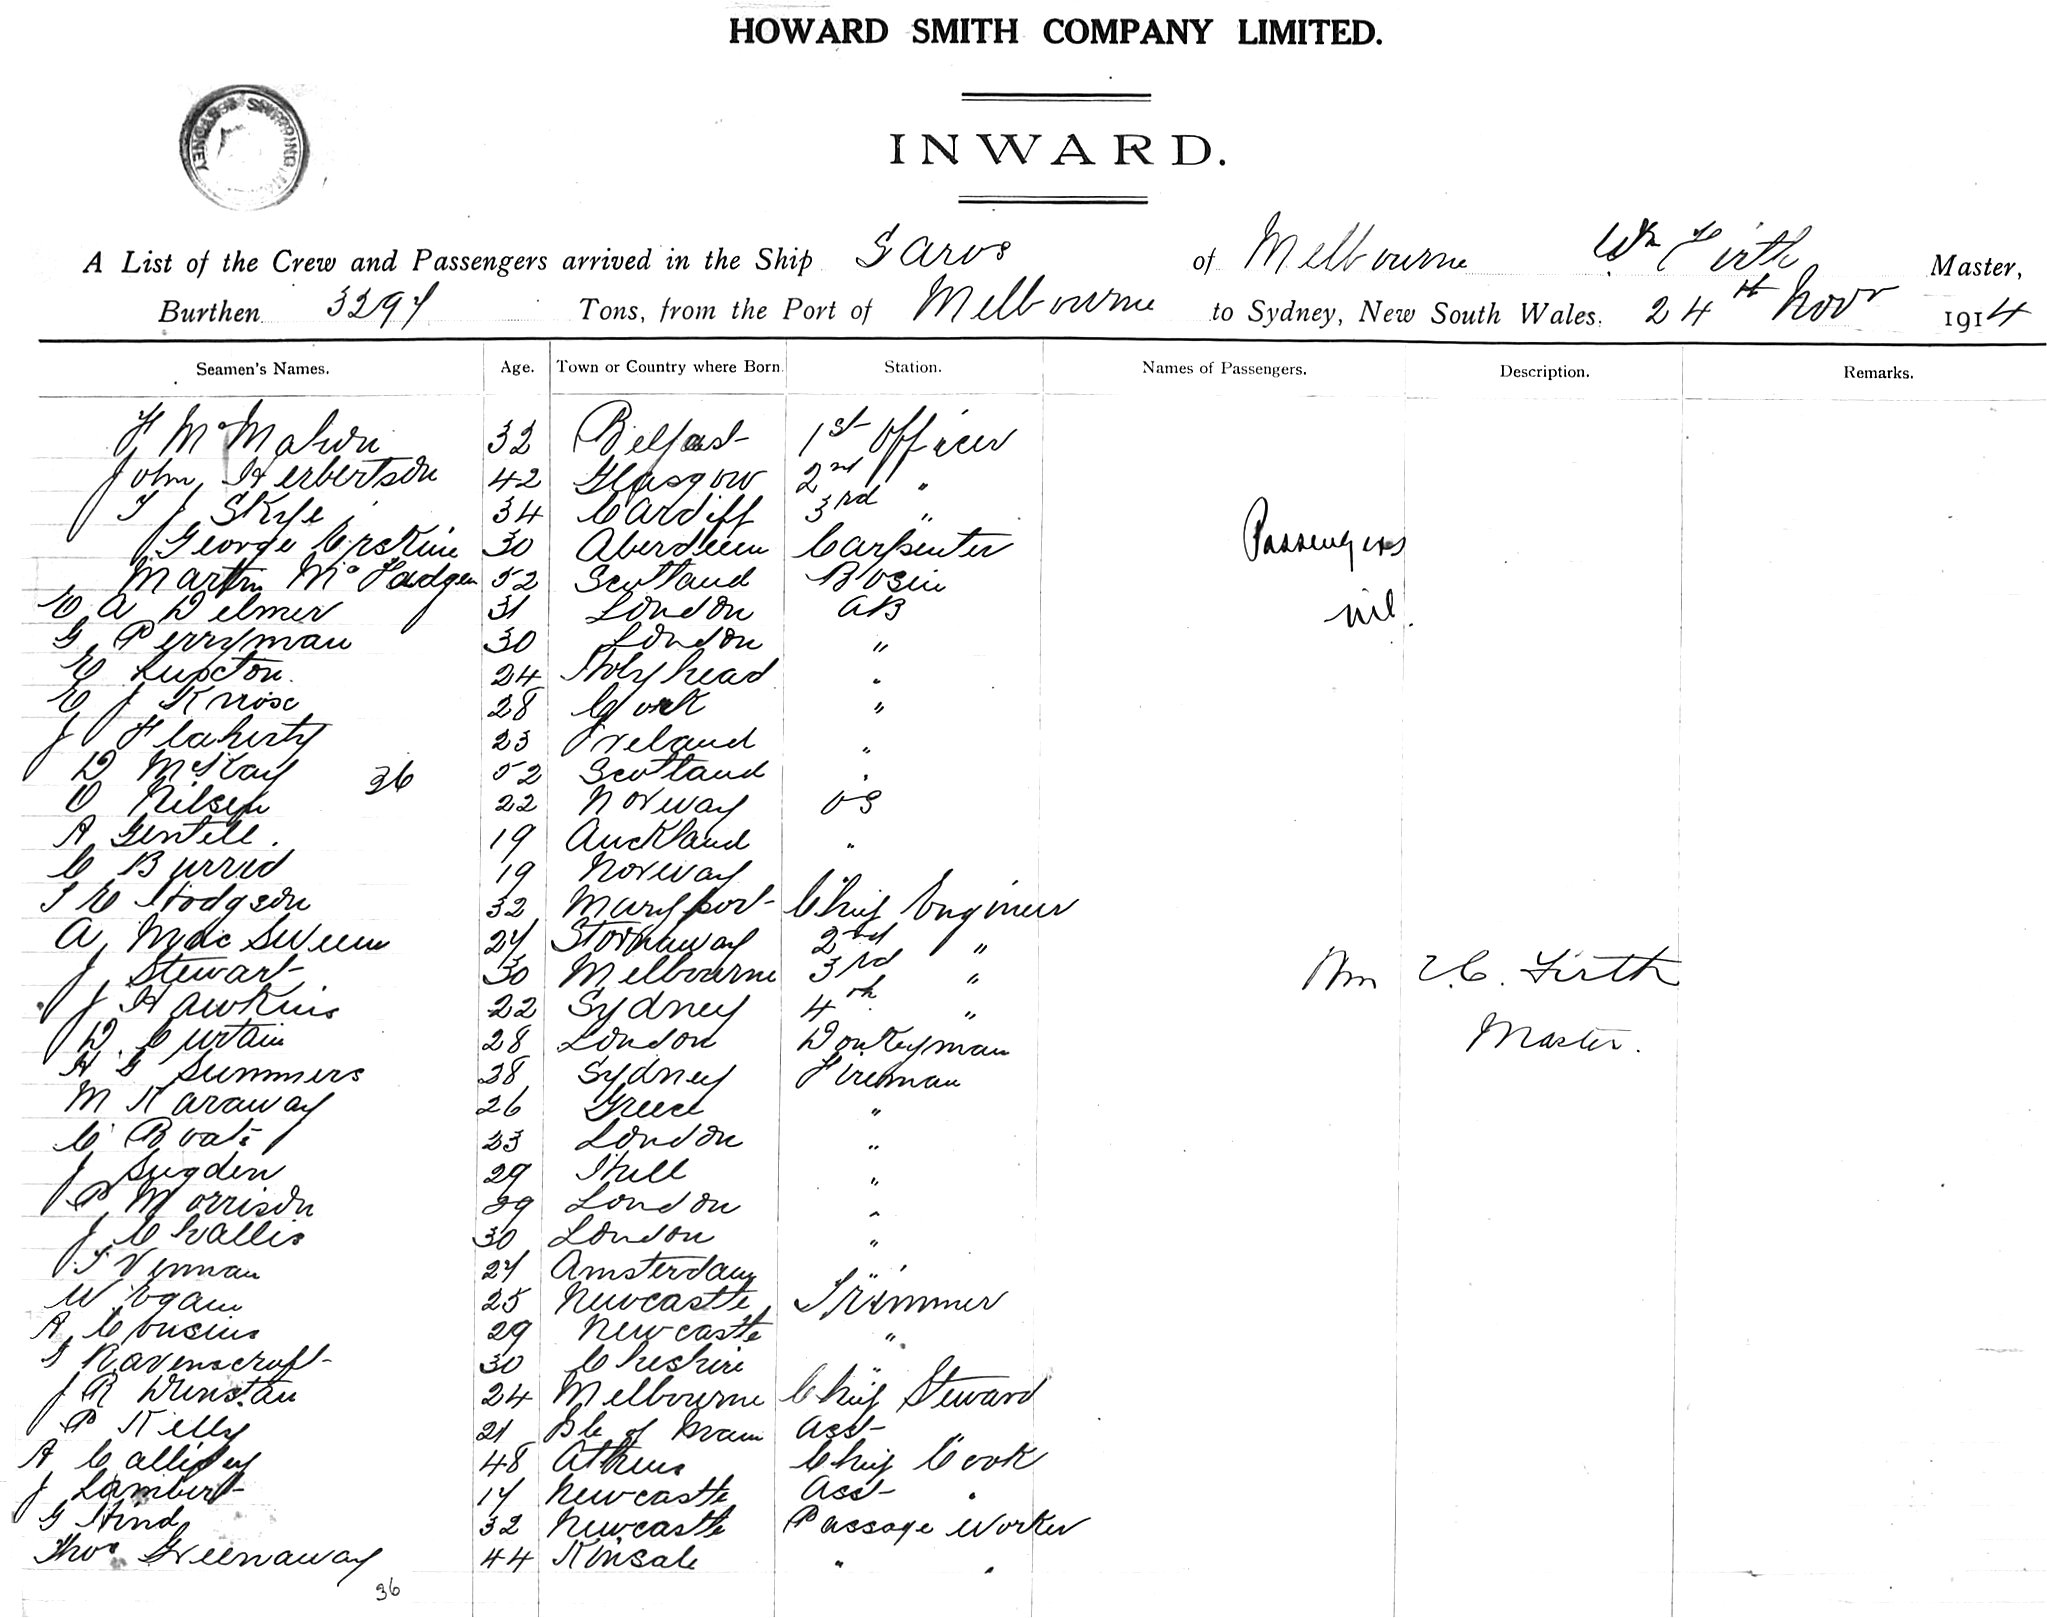 HOWARD SMITH COMPANY LIMITED.
INWARD.
A List of the Crew and Passengers arrived in the Ship Saros of Melbourne Wm Firth Master,
Burthen 3297 Tons, from the Port of Melbourne to Sydney, New South Wales. 24th Novr 1914
Seamen's Names. Age. Town or Country where Born. Station. Names of Passengers. Description. Remarks.
F McMahon 32 Belfast 1st Officer
John Herbertson 42 Glasgow 2nd "
T J Skye 34 Cardiff 3rd "
George Erskine 30 Aberdeen Carpenter Passengers
Martin McFadgen 52 Scotland Bosin
E A Delmer 31 London AB nil.
G Perryman 30 London "
E Lupton. 24 Holyhead "
E J Knox 28 Cork "
J Flaherty 23 Ireland "
D McKay 36 52 Scotland "
O Nilsen 22 Norway OS
A Gentell. 19 Auckland "
C Burrud 19 Norway
T E Hodgson 32 Maryport Chief Engineer
A MacSween 27 Stornaway 2nd "
J Stewart 30 Melbourne 3rd " Wm Firth
J Hawkins 22 Sydney 4th "
D Curtain 28 London Donkeyman Master.
H G Summers 38 Sydney Fireman
M Karaway 26 Greece "
C Boats 23 London "
J Sugden 29 Hull "
P Morrison 29 London "
J Challis 30 London "
T Venman 27 Amsterdam "
W Ogam 25 Newcastle Trimmer
A Cousins 29 Newcastle "
G Ravenscroft 30 Cheshire "
J R Dunstan 24 Melbourne Chief Steward
P Kelly 21 Isle of Man Asst "
A Callipey 48 Athens Chief Cook
J Lambert 17 Newcastle Asst "
G Hind 32 Newcastle Passage Worker
Thos Greenaway 44 Kinsale " "
36